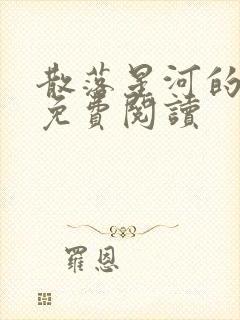 散落星河的
免費閱讀
羅恩